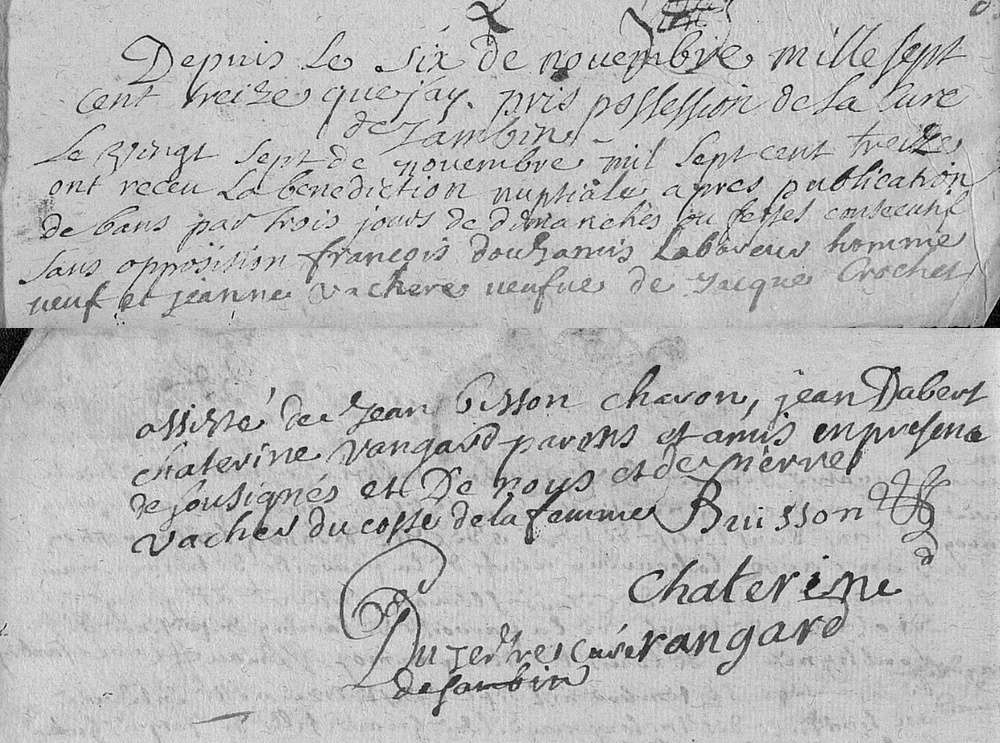 Depuis le six de novembre mille sept
cent treize que jay. pris possession de la Cure
de Sambin
Le vingt sept de novembre mil sept cent treize
ont receu la benediction nuptiale apres publication
de bans par trois jours de dimanches ou festes consecutif
sans opposition françois douzamis Laboreur homme
neuf et jeanne vachere veufve de Jacque Crochet
assisté de Jean bisson charon, jean Dabert
chaterine Vangard parens et amis en presence
de sousignés et De nous et de pierre
vacher du costé de la femme Buisson
Chaterine
Dutertres curé vangard
de sambin